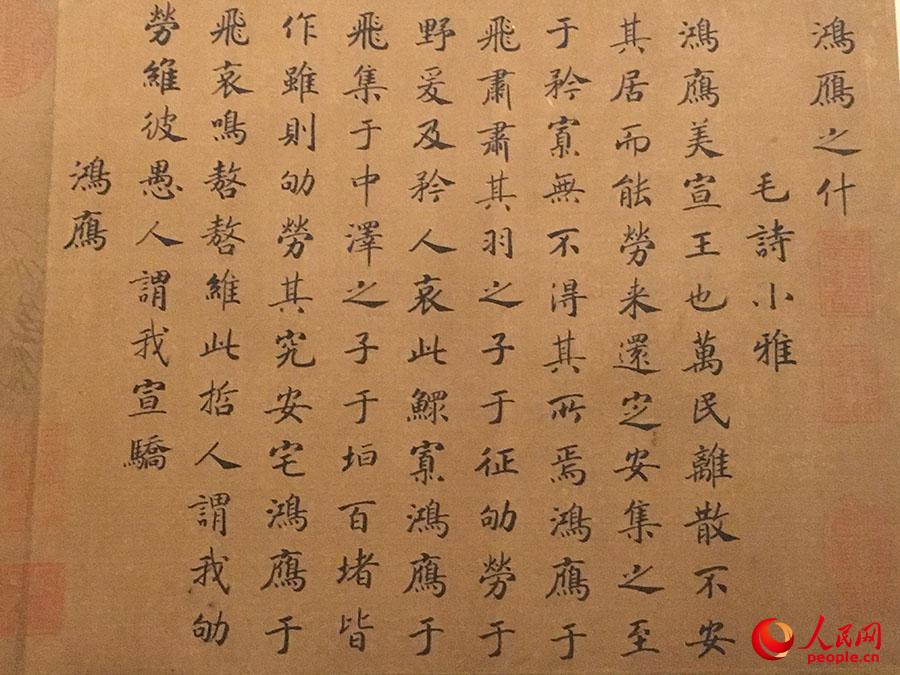 鴻鴈之什
毛詩小雅
鴻鴈美宣王也萬民離散不安
其居而能勞来還定安集之至
于矜寡無不得其所焉鴻鴈于
飛肅肅其羽之子于征劬勞于
野爰及矜人哀此鰥寡鴻鴈于
飛集于中澤之子于垣百堵皆
作雖則劬勞其究安宅鴻鴈于
飛哀鳴嗸嗸維此哲人謂我劬
勞維彼愚人謂我宣驕
鴻鴈
人民网
people.cn